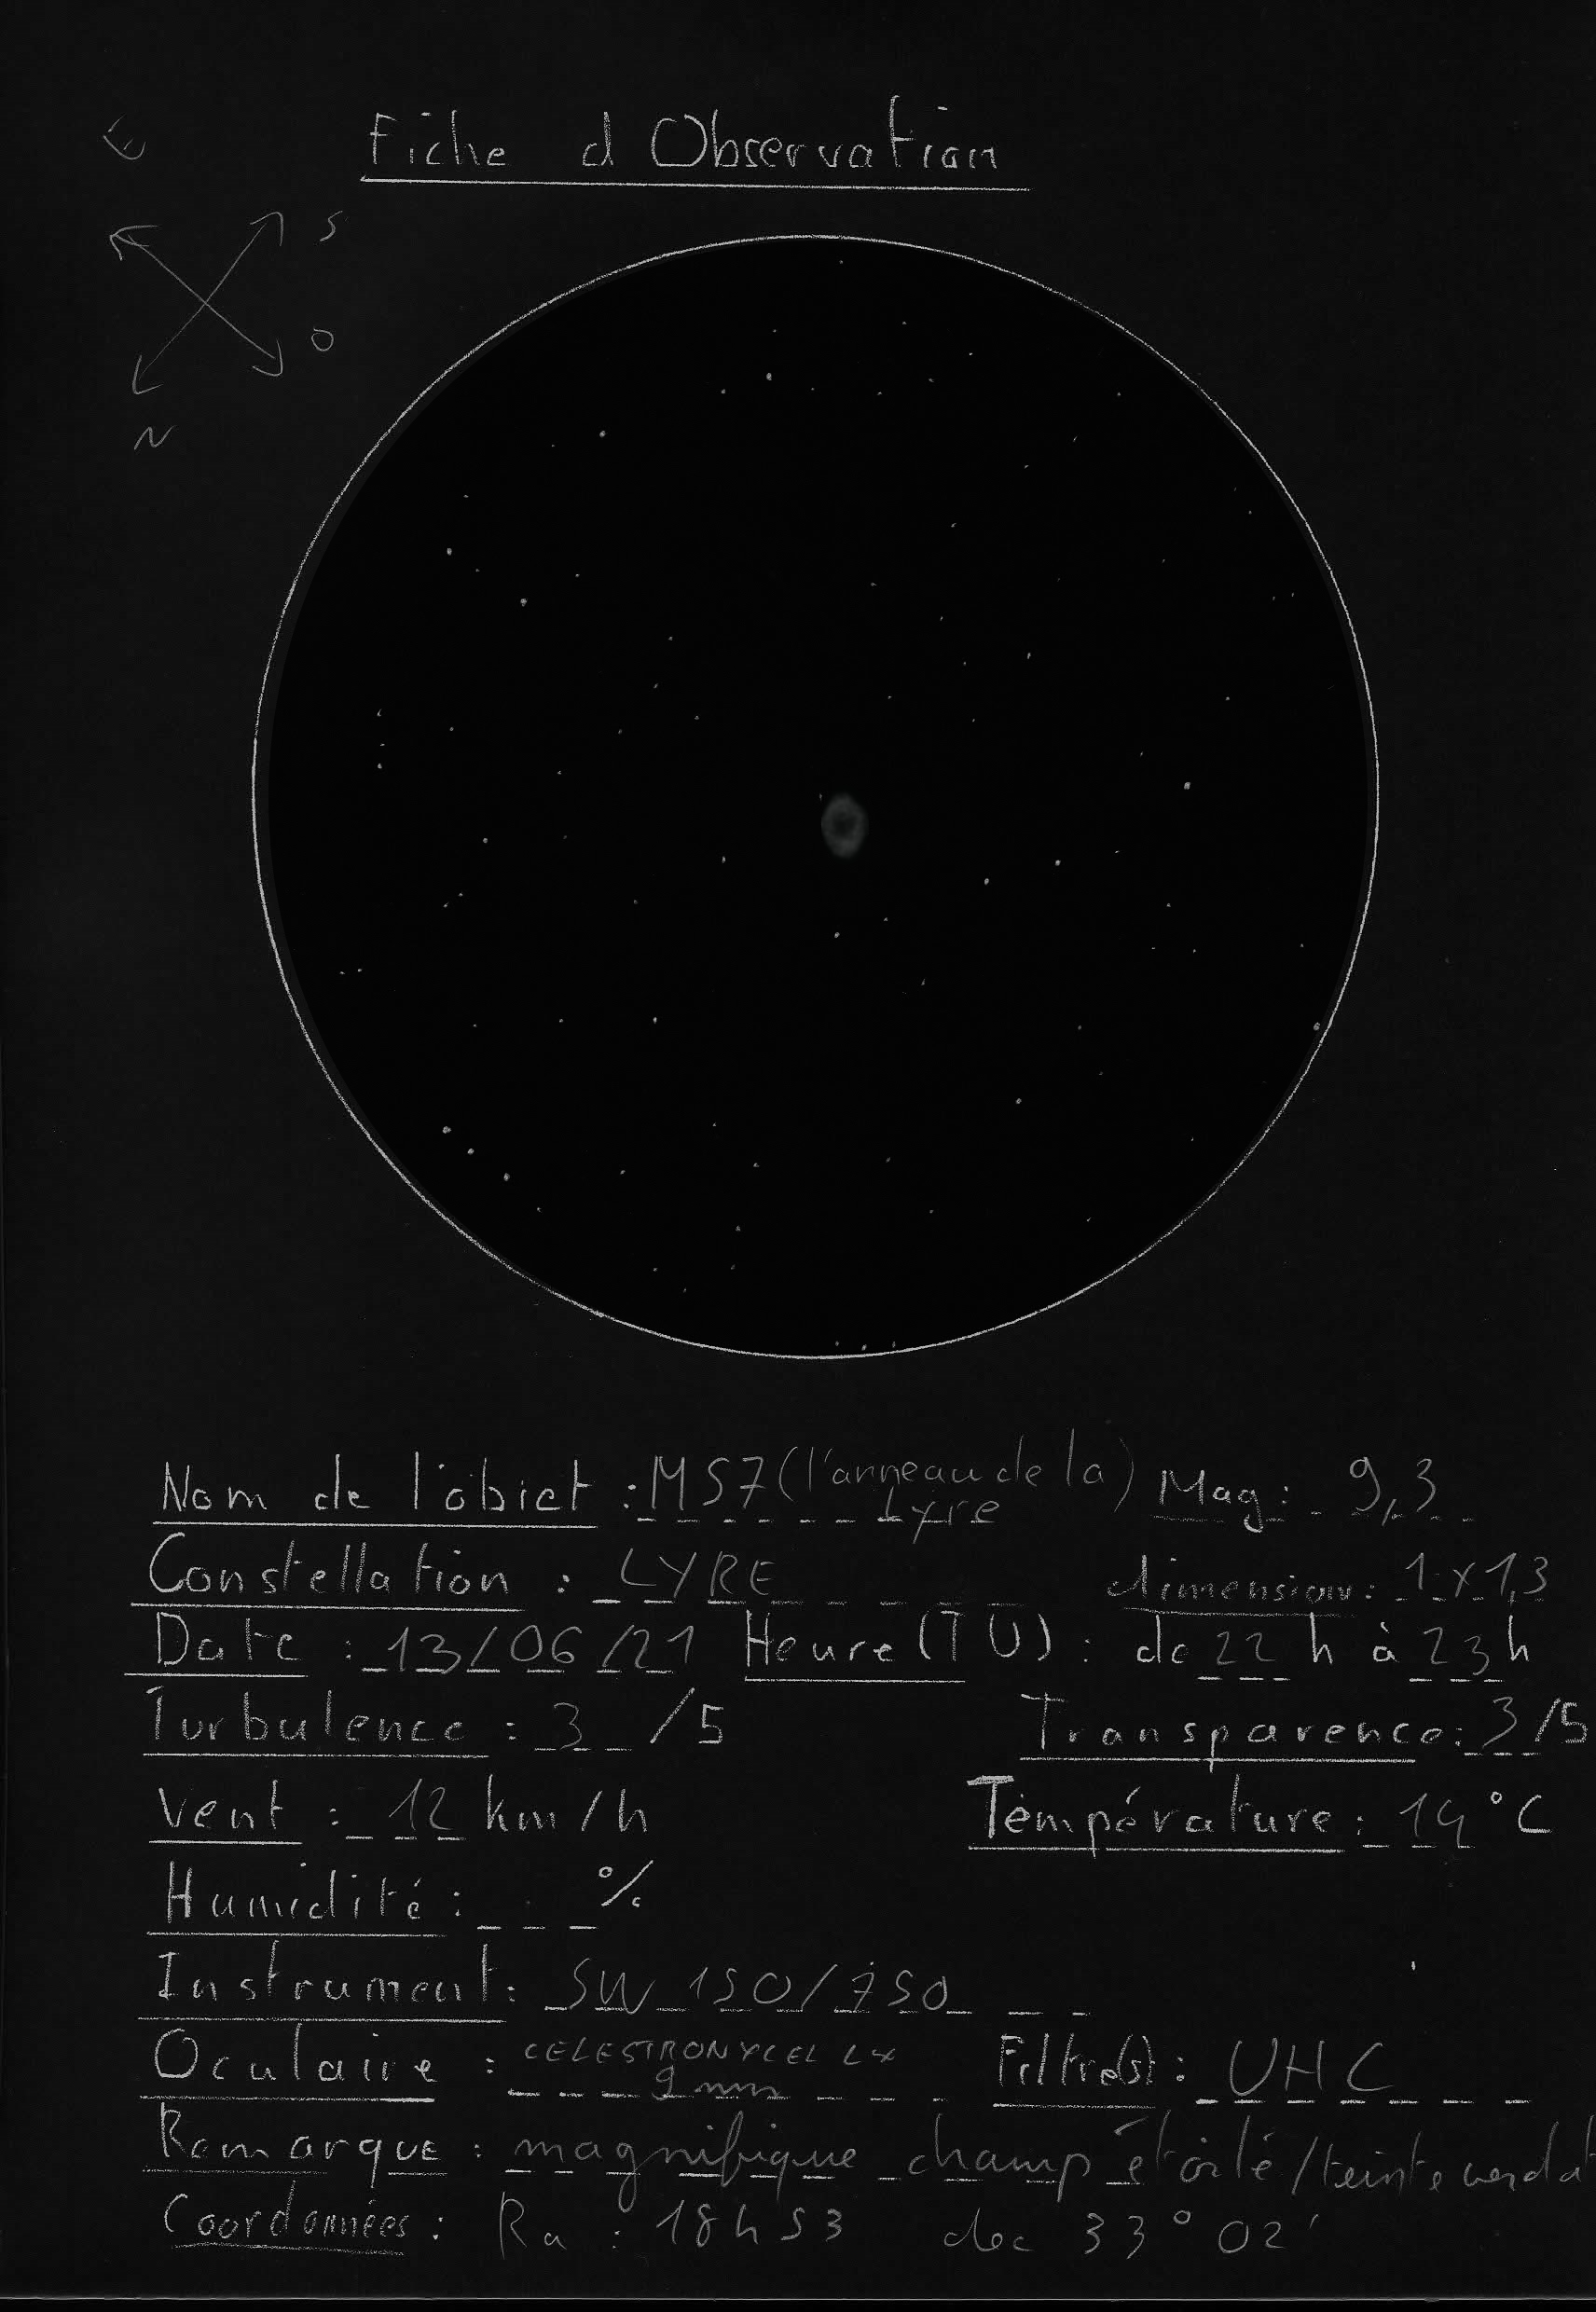 Fiche d Observation
E
S
O
N
Nom de l'objet : M57 (l'anneau de la) Mag : 9,3
Lyre
Constellation : LYRE dimension : 1 x 1,3
Date : 13/06/21 Heure (TU) : de 22 h à 23 h
Turbulence : 3 /5 Transparence : 3 /5
Vent : 12 km/h Température : 14 °C
Humidité : %
Instrument : SW 150/750
Oculaire : CELESTRON XCEL LX Filtre(s) : UHC
9 mm
Remarque : magnifique champ étoilé / teinte
Coordonnées : Ra : 18h53 dec 33° 02'